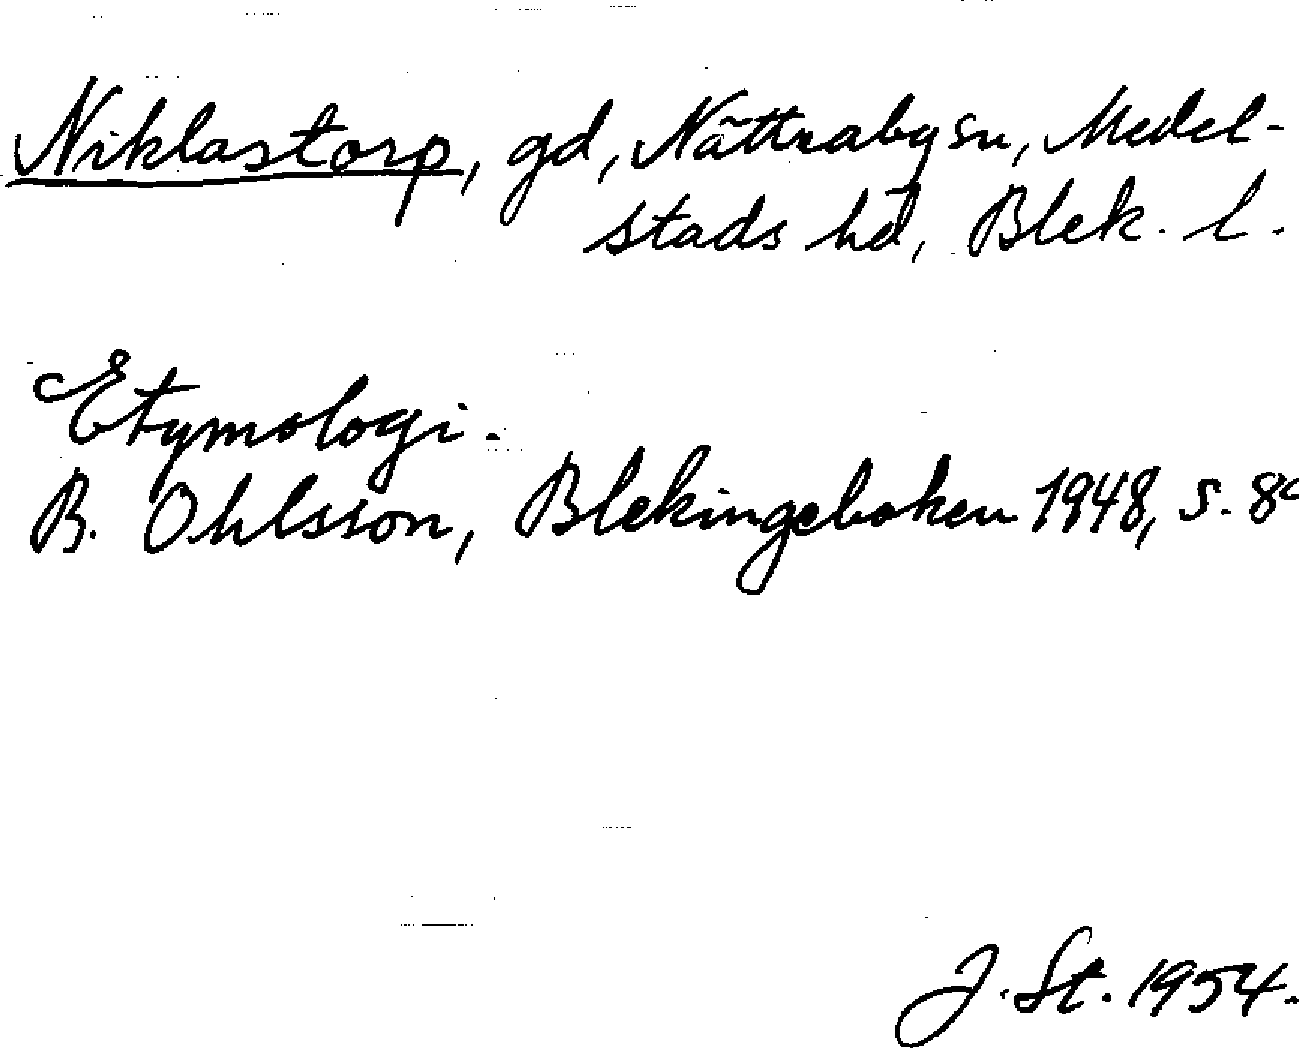 Niklastorp, gd, Nättraby sn, Medel-
stads hd, Blek. l.
Etymologi.
B. Ohlsson, Blekingeboken 1948, s.
J. St. 1954.